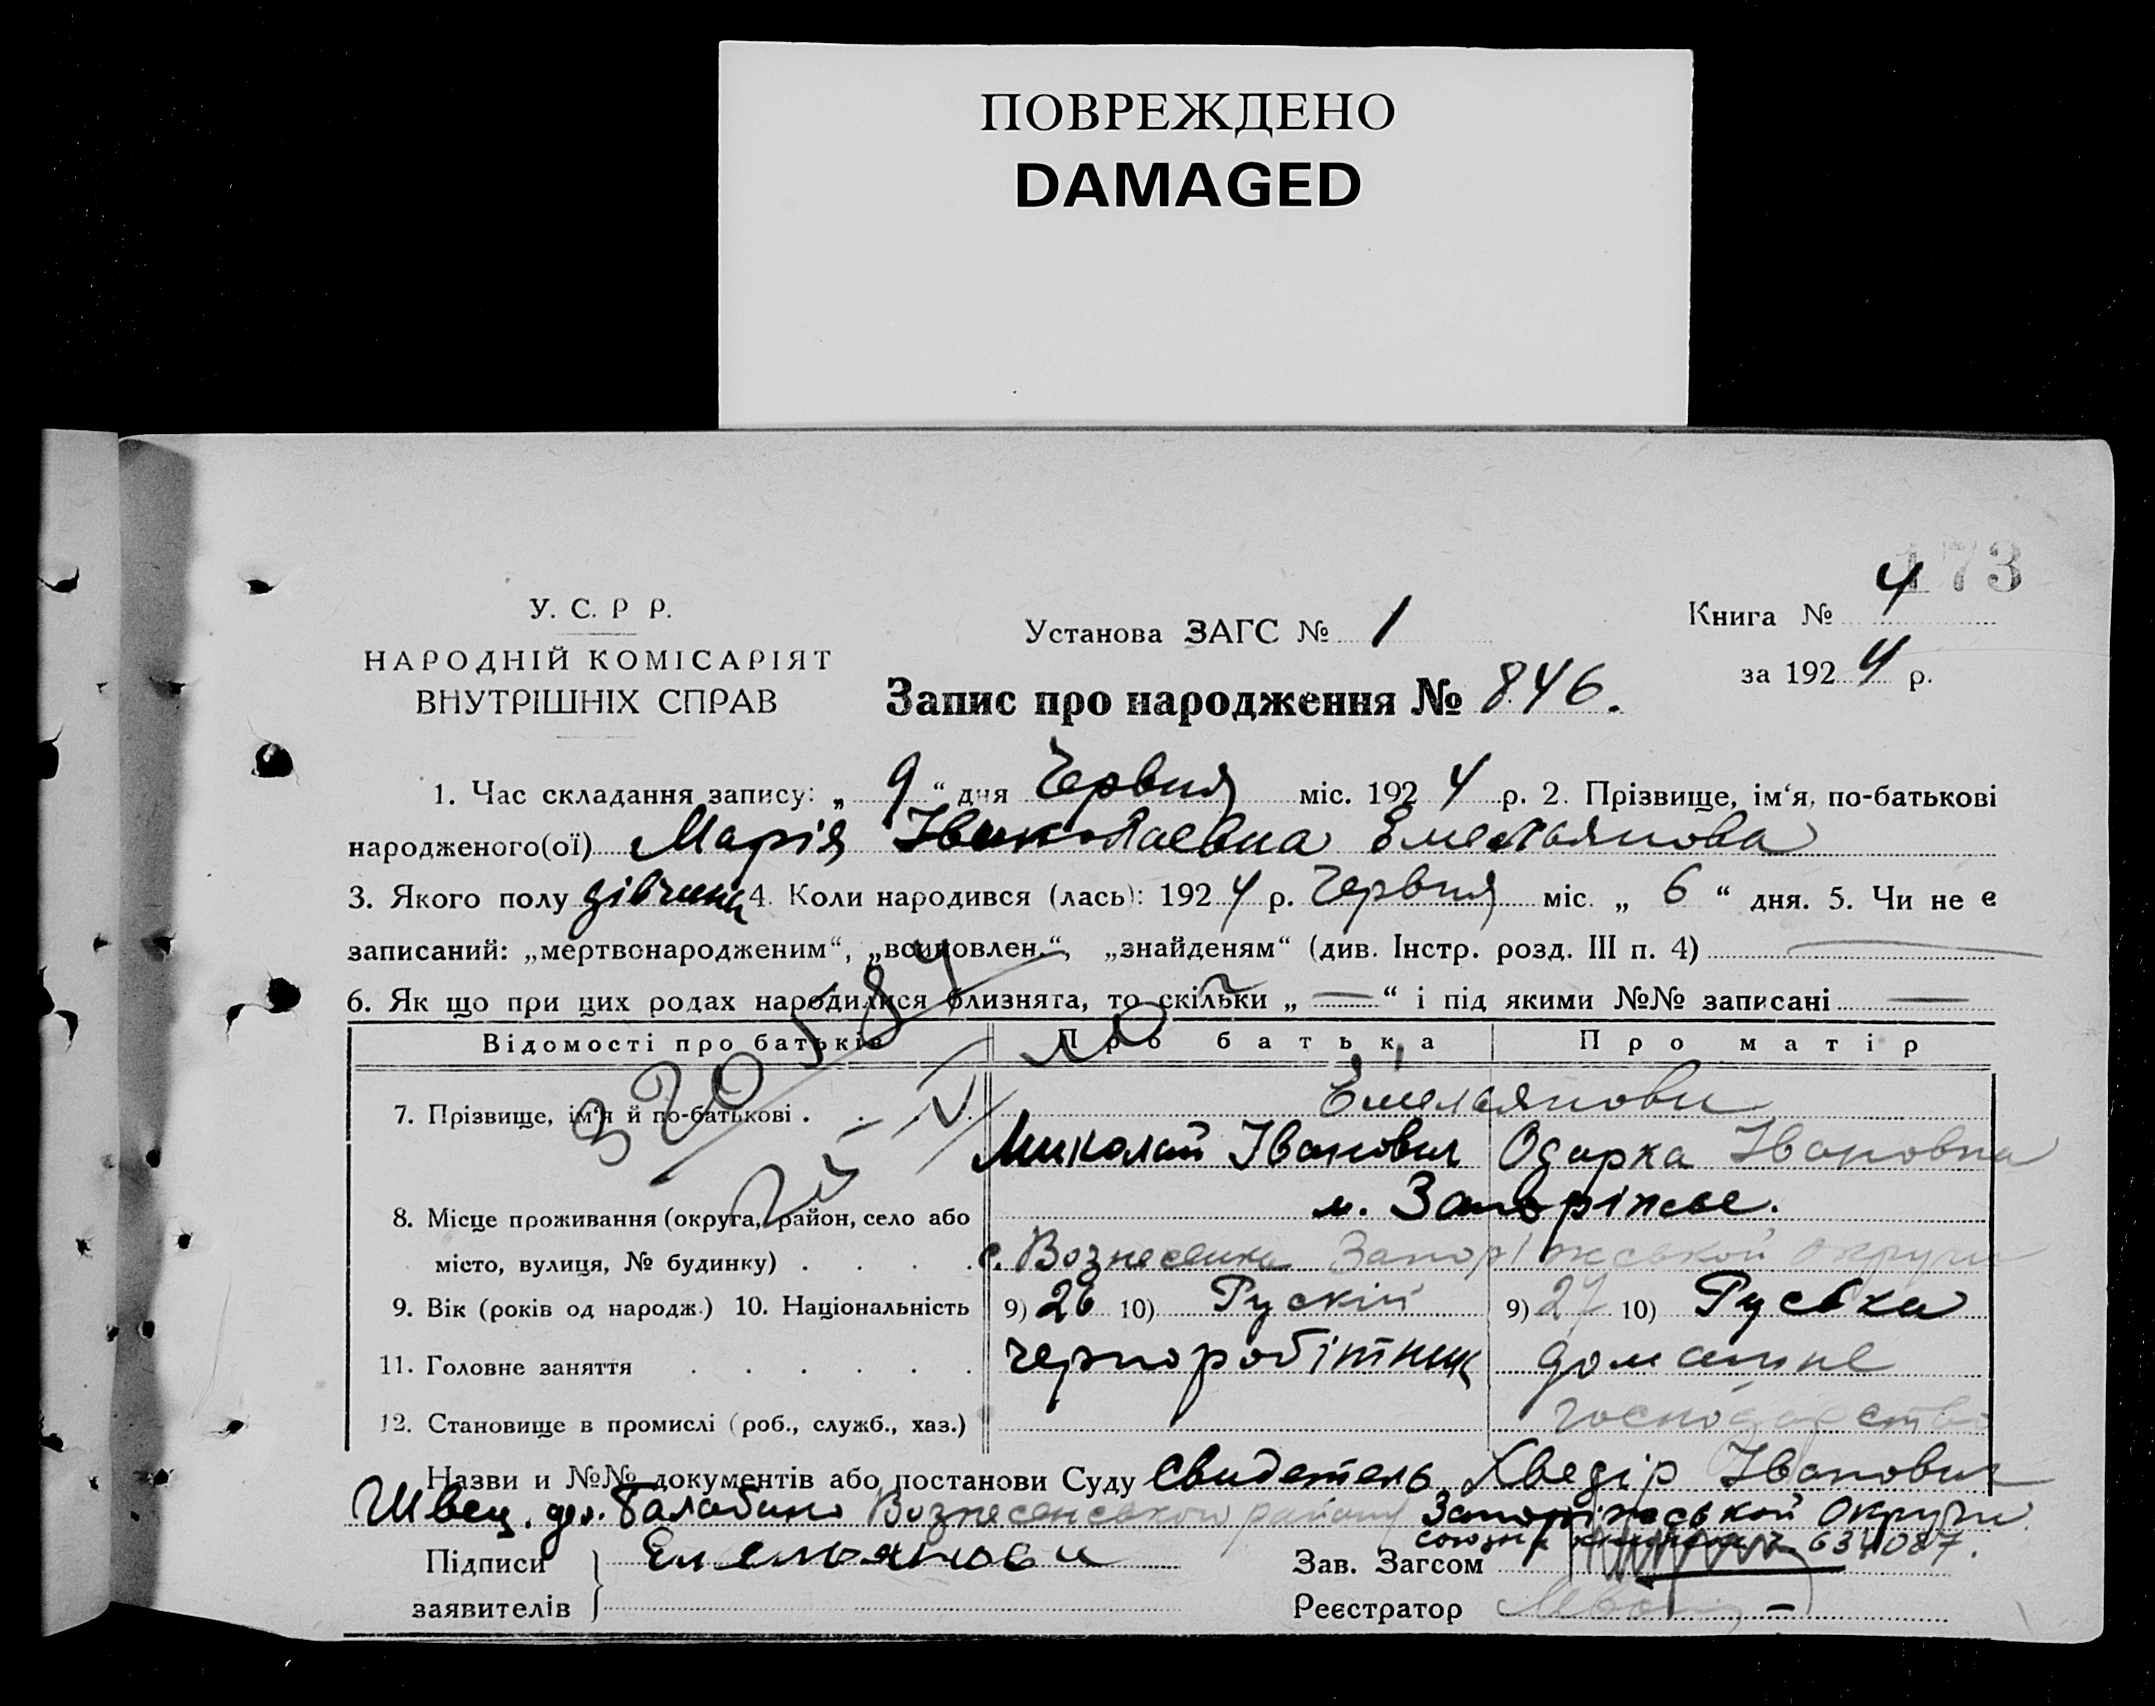 ПОВРЕЖДЕНО
DAMAGED
173
У. С. Р Р.
НАРОДНІЙ КОМІСАРІЯТ
ВНУТРІШНІХ СПРАВ
Установа ЗАГС № 1
Книга № 4
за 1924 р.
Запис про народження № 846.
1. Час складання запису: „ 9 “ дня Червня міс. 1924 р. 2. Прізвище, ім‘я, по-батькові
народженого(ої) Марія Емельянова
3. Якого полу дівчина 4. Коли народився (лась): 1924 р. Червня міс. „ 6 “ дня. 5. Чи не є
записаний: „мертвонародженим“, „всиновлен.“, „знайденям“ (див. Інстр. розд. III п. 4)
6. Як що при цих родах народилися близнята, то скільки „ — “ і під якими №№ записані —
Відомості про батьків Про батька Про матір
7. Прізвище, ім‘я й по-батькові . . . . Емельянови
Миколай Іванович Одарка Івановна
8. Місце проживання (округа, район, село або м. Запоріжье.
місто, вулиця, № будинку) . . . . с. Вознесенка Запоріжської округи
9. Вік (років од народж.) 10. Національність 9) 26 10) Рускій 9) 27 10) Руська
11. Головне заняття . . . . . . черноробітник домашне
12. Становище в промислі (роб., служб., хаз.) господарство
Назви и №№ документів або постанови Суду Свидетель Хведір Іванович
Швец. Балабино Вознесенського району Запоріжськой округи
634087.
Підписи Емельянови Зав. Загсом
заявителів Реєстратор